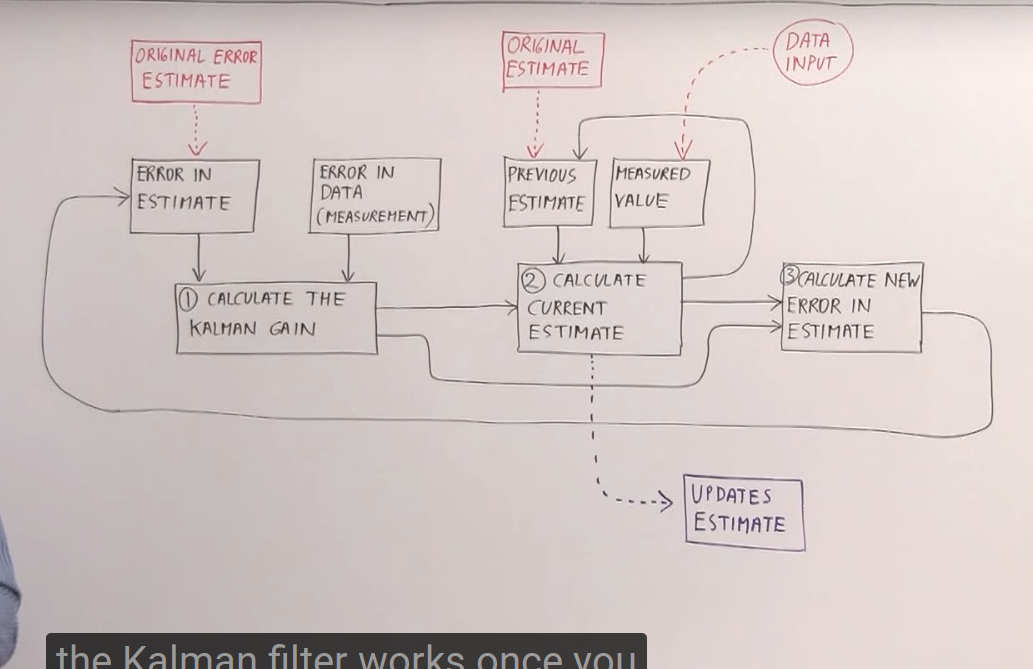 ORIGINAL ERROR
ESTIMATE
ORIGINAL
ESTIMATE
DATA
INPUT
ERROR IN
ESTIMATE
ERROR IN
DATA
(MEASUREMENT)
PREVIOUS
ESTIMATE
MEASURED
VALUE
① CALCULATE THE
KALMAN GAIN
② CALCULATE
CURRENT
ESTIMATE
③ CALCULATE NEW
ERROR IN
ESTIMATE
UPDATES
ESTIMATE
the Kalman filter works once you